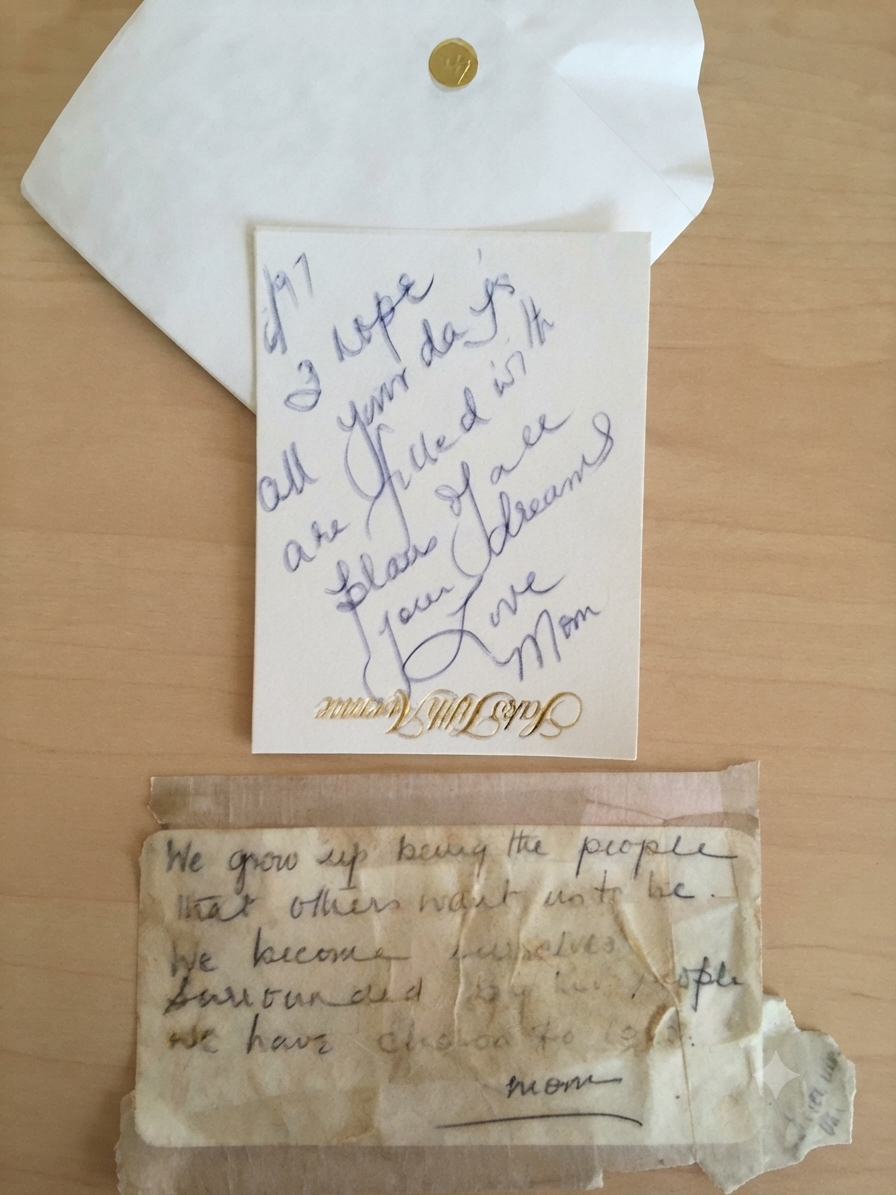 I hope
all your days
are filled with
plans of all
your dreams
Love
Mom
Saks Fifth Avenue
We grow up being the people
that others want us to be.
We become ourselves
surrounded by the people
we have chosen to
mom